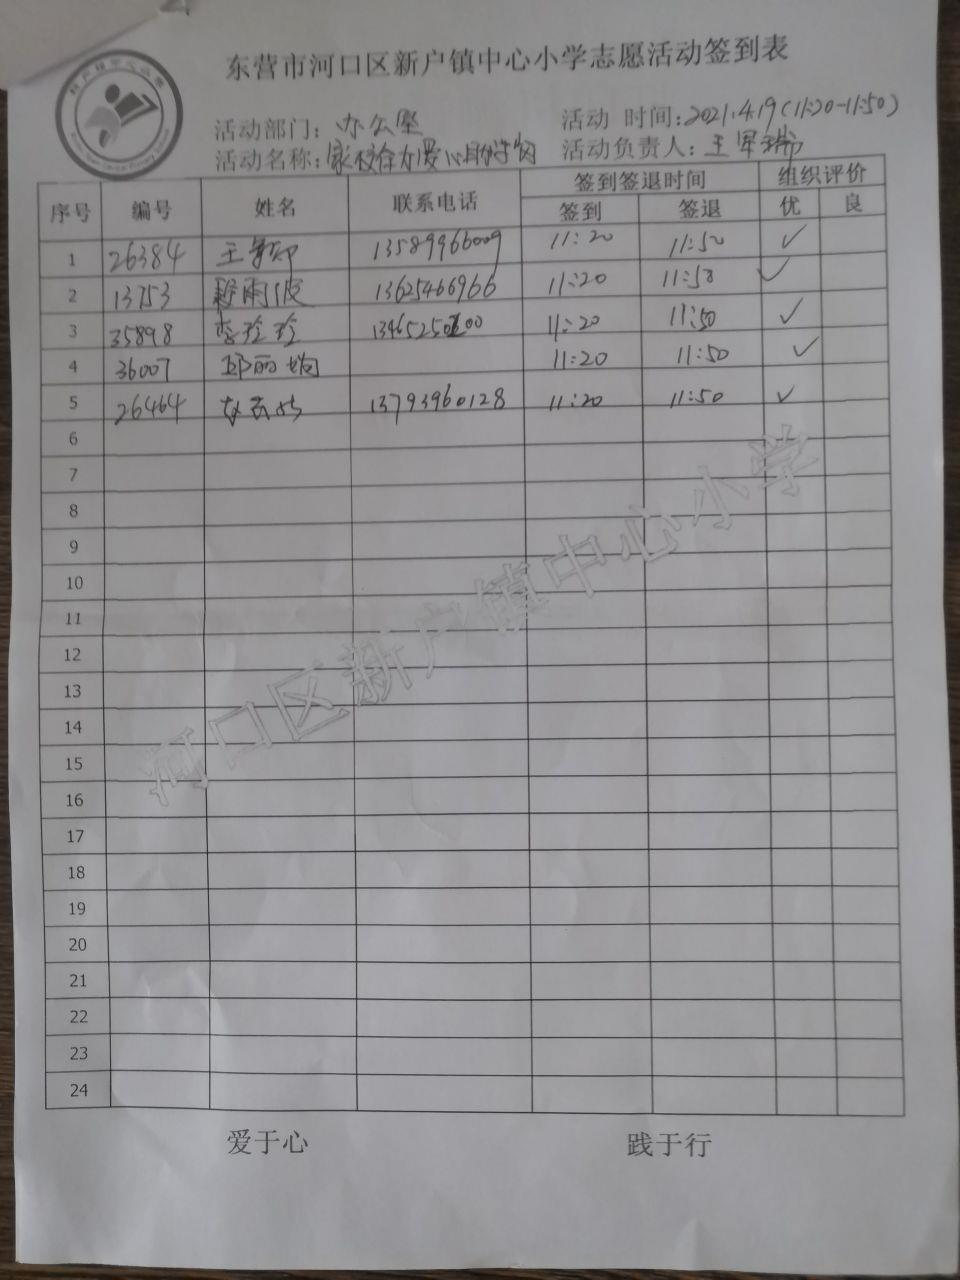 东营市河口区新户镇中心小学志愿活动签到表
活动部门：办公室 活动 时间：2021.4.19(11:20-11:50)
活动名称：家校合力爱心助学 活动负责人：王军瑞
序号 编号 姓名 联系电话 签到签退时间 组织评价
签到 签退 优 良
1 26384 王 13589966009 11:20 11:50 ✓
2 13753 13625466966 11:20 11:50 ✓
3 35898 李玲玲 11:20 11:50 ✓
4 36007 邱丽娟 11:20 11:50 ✓
5 26464 13793960128 11:20 11:50 ✓
6
7
8
9
10
11
12
13
14
15
16
17
18
19
20
21
22
23
24
河口区新户镇中心小学
爱于心 践于行